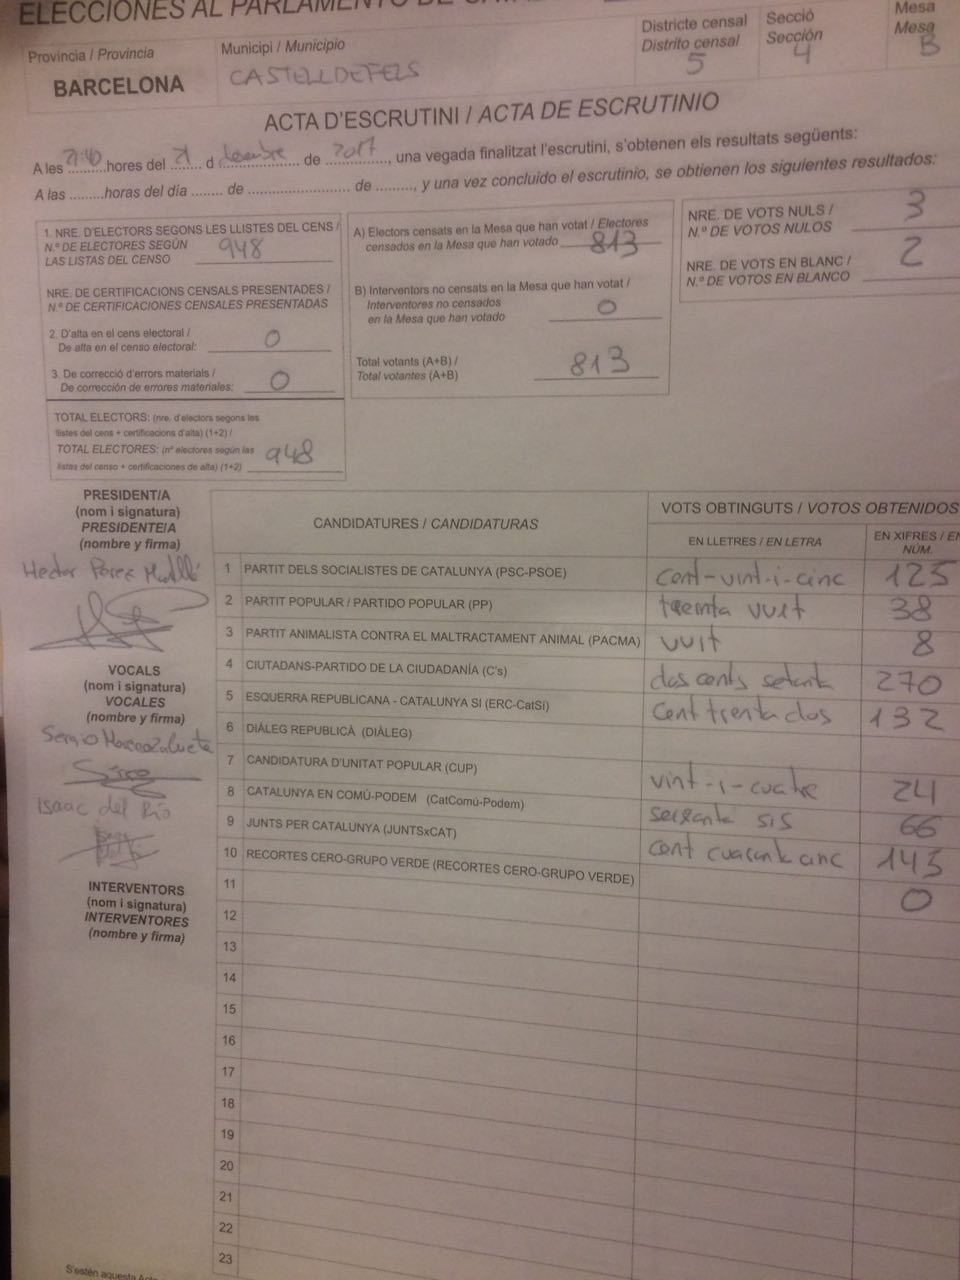 ELECCIONES AL PARLAMENTO DE
Província / Provincia
BARCELONA
Municipi / Municipio
CASTELLDEFELS
Districte censal
Distrito censal
5
Secció
Sección
4
Mesa
Mesa
B
ACTA D'ESCRUTINI / ACTA DE ESCRUTINIO
A les 21:40 hores del 21 d desembre de 2017, una vegada finalitzat l'escrutini, s'obtenen els resultats següents:
A las .........horas del día ........ de ...................... de ........., y una vez concluido el escrutinio, se obtienen los siguientes resultados:
1. NRE. D'ELECTORS SEGONS LES LLISTES DEL CENS /
N.º DE ELECTORES SEGÚN
LAS LISTAS DEL CENSO 948
NRE. DE CERTIFICACIONS CENSALS PRESENTADES /
N.º DE CERTIFICACIONES CENSALES PRESENTADAS
2. D'alta en el cens electoral /
De alta en el censo electoral: 0
3. De correcció d'errors materials /
De corrección de errores materiales: 0
TOTAL ELECTORS: (nre. d'electors segons les
llistes del cens + certificacions d'alta) (1+2) /
TOTAL ELECTORES: (nº electores según las
listas del censo + certificaciones de alta) (1+2) 948
A) Electors censats en la Mesa que han votat / Electores
censados en la Mesa que han votado 813
B) Interventors no censats en la Mesa que han votat /
Interventores no censados
en la Mesa que han votado 0
Total votants (A+B) /
Total votantes (A+B) 813
NRE. DE VOTS NULS /
N.º DE VOTOS NULOS 3
NRE. DE VOTS EN BLANC /
N.º DE VOTOS EN BLANCO 2
PRESIDENT/A
(nom i signatura)
PRESIDENTE/A
(nombre y firma)
Hector Perez
VOCALS
(nom i signatura)
VOCALES
(nombre y firma)
Sergio Moreno Zulueta
Isaac del Río
INTERVENTORS
(nom i signatura)
INTERVENTORES
(nombre y firma)
CANDIDATURES / CANDIDATURAS
VOTS OBTINGUTS / VOTOS OBTENIDOS
EN LLETRES / EN LETRA
EN XIFRES / EN
NÚM.
1 PARTIT DELS SOCIALISTES DE CATALUNYA (PSC-PSOE) cent-vint-i-cinc 125
2 PARTIT POPULAR / PARTIDO POPULAR (PP) trenta vuit 38
3 PARTIT ANIMALISTA CONTRA EL MALTRACTAMENT ANIMAL (PACMA) vuit 8
4 CIUTADANS-PARTIDO DE LA CIUDADANÍA (C's) dos cents setanta 270
5 ESQUERRA REPUBLICANA - CATALUNYA SÍ (ERC-CatSí) Cent trenta dos 132
6 DIÀLEG REPUBLICÀ (DIÀLEG)
7 CANDIDATURA D'UNITAT POPULAR (CUP) vint-i-cuatre 24
8 CATALUNYA EN COMÚ-PODEM (CatComú-Podem) seixanta sis 66
9 JUNTS PER CATALUNYA (JUNTSxCAT) cent cuaranta cinc 145
10 RECORTES CERO-GRUPO VERDE (RECORTES CERO-GRUPO VERDE) 0
11
12
13
14
15
16
17
18
19
20
21
22
23
S'estén aquesta Acta